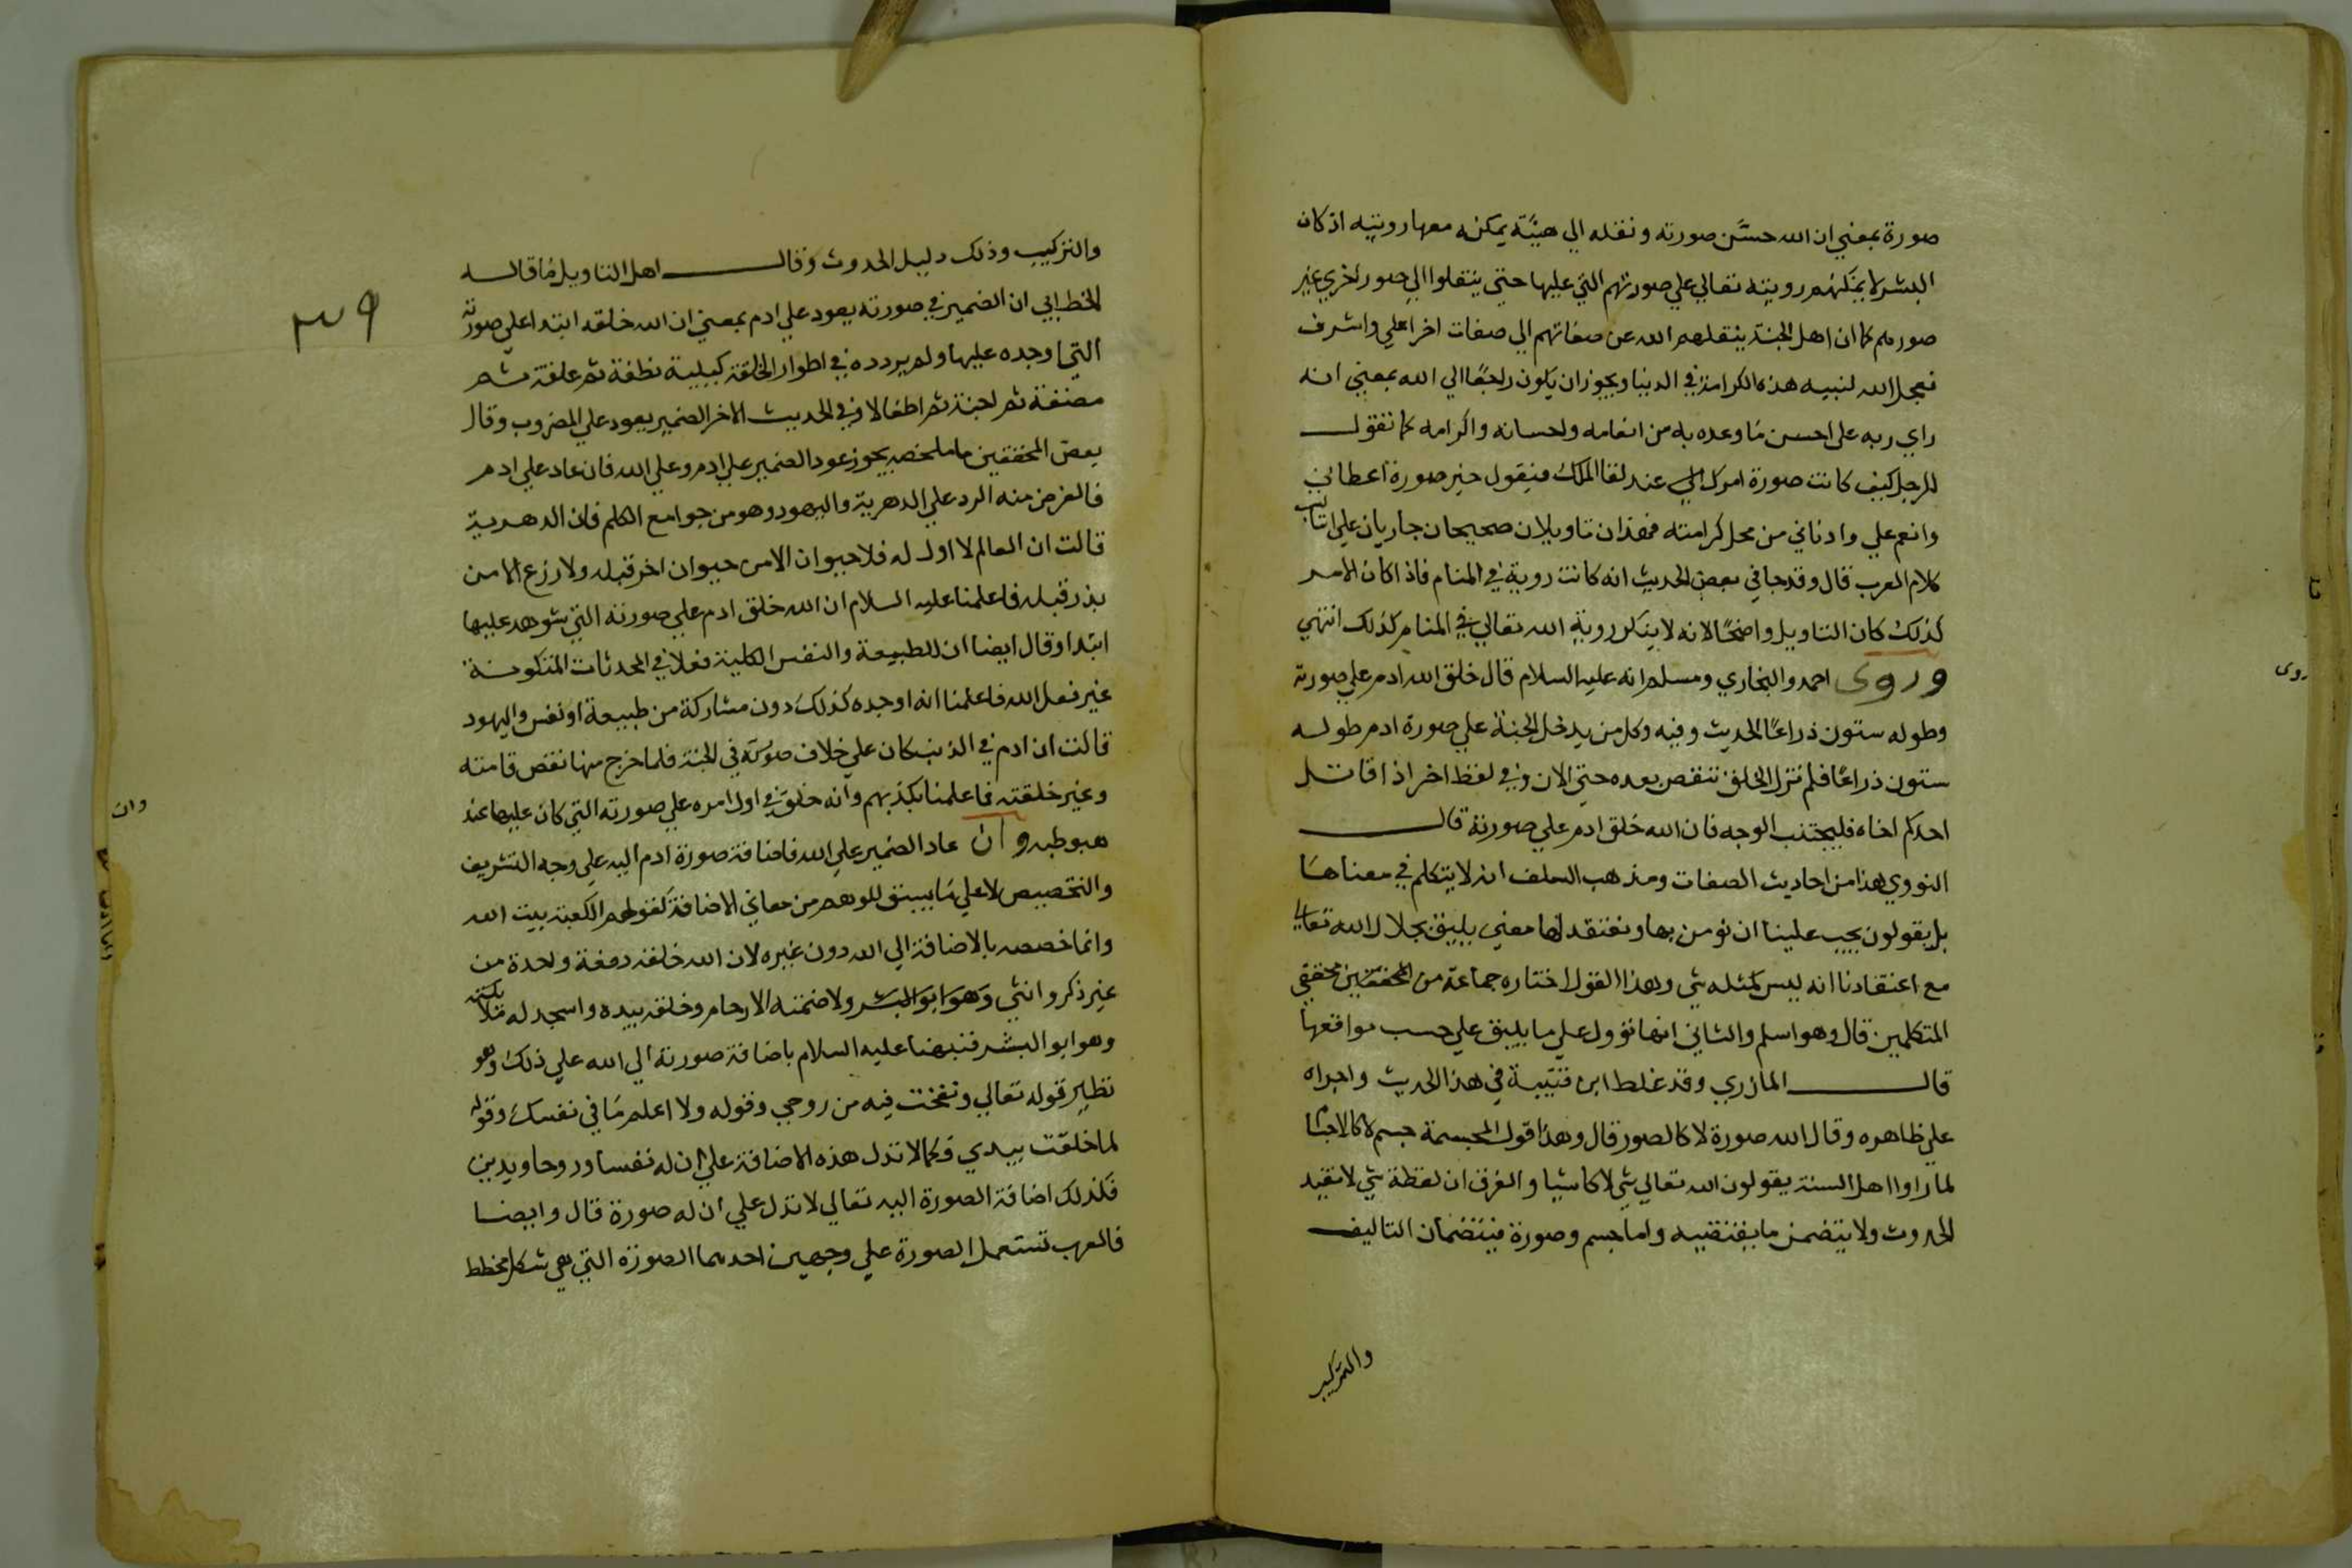 صورة بمعني ان الله حسَّن صورته ونقله الي هيئة يمكنه معها رويته اذ كان
البشر لا يمكنهم رويته تعالي علي صورتهم التي عليها حتي ينتقلوا الي صور اخري غير
صورهم كما ان اهل الجنة ينقلهم الله عن صفاتهم الي صفات اخرا علي واشرف
فعجل الله لنبيه هذه الكرامة في الدنيا ويجوز ان يكون راجعًا الي الله بمعني انه
راي ربه علي احسن ما وعده به من انعامه واحسانه واكرامه كما تقول
للرجل كيف كانت صورة امرك الي عند لقا الملك فيقول خير صورة اعطاني
وانعم علي وادناني من محل كرامته فهذان تاويلان صحيحان جاريان علي اساليب
كلام العرب قال وقد جا في بعض الحديث انه كانت روية في المنام فاذا كان الامر
كذلك كان التاويل واضحًا لانه لا ينكر روية الله تعالي في المنام كذلك انتهي
وروى احمد والبخاري ومسلم انه عليه السلام قال خلق الله ادم علي صورته
وطوله ستون ذراعًا الحديث وفيه وكل من يدخل الجنة علي صورة ادم طوله
ستون ذراعًا فلم تزل الخلق تنقص بعده حتي الان وفي لفظ اخر اذا قاتل
احدكم اخاه فليجتنب الوجه فان الله خلق ادم علي صورته قال
النووي هذا من احاديث الصفات ومذهب السلف ان لا يتكلم في معناها
بل يقولون يجب علينا ان نومن بها ونعتقد لها معني يليق بجلال الله تعالي
مع اعتقادنا انه ليس كمثله شي وهذا القول اختاره جماعة من المحققين محققي
المتكلمين قال وهو اسلم والثاني انها تؤول علي ما يليق علي حسب مواقعها
قال المازري وقد غلط ابن قتيبة في هذا الحديث واجراه
علي ظاهره وقال الله صورة لا كالصور قال وهذا قول المجسمة جسم لا كالاجسا
لما راوا اهل السنة يقولون الله تعالي شي لا كاشيا والفرق ان لفظة شي لا تفيد
الحدوث ولا يتضمن ما يقتضيه واما جسم وصورة فيتضمان التاليف
والتركيب
روى
والتركيب وذلك دليل الحدوث وقال اهل التاويل ما قاله
الخطابي ان الضمير في صورته يعود علي ادم بمعني ان الله خلقه ابتدا علي صورته
التي اوجده عليها ولم يردده في اطوار الخلقة كبنيه نطفة ثم علقة ثم
مضغة ثم اجنة ثم اطفالا وفي الحديث الاخر الضمير يعود علي المضروب وقال
بعض المحققين ما ملخصه يجوز عود الضمير علي ادم وعلي الله فان عاد علي ادم
فالغرض منه الرد علي الدهرية واليهود وهو من جوامع الكلم فان الدهرية
قالت ان العالم لا اول له فلا حيوان الا من حيوان اخر قبله ولا زرع الا من
بذر قبله فاعلمنا عليه السلام ان الله خلق ادم علي صورته التي شوهد عليها
ابتدا وقال ايضا ان للطبيعة والنفس الكلية فعلا في المحدثات المتكونة
غير فعل الله فاعلمنا انه اوجده كذلك دون مشاركة من طبيعة او نفس واليهود
قالت ان ادم في الدنيا كان علي خلاف صورته في الجنة فلما خرج منها نقص قامته
وغير خلقته فاعلمنا بكذبهم وانه خلق في اول امره علي صورته التي كان عليها عند
هبوطه وان عاد الضمير علي الله فاضافة صورة ادم اليه علي وجه التشريف
والتخصيص لا علي ما يسبق للوهم من معاني الاضافة كقولهم الكعبة بيت الله
وانما خصصه بالاضافة الي الله دون غيره لان الله خلقه دفعة واحدة من
غير ذكر وانثي وهو ابو البشر ولا ضمته الارحام وخلقه بيده واسجد له ملائكته
وهو ابو البشر فنبهنا عليه السلام باضافة صورته الي الله علي ذلك وهو
نظير قوله تعالي ونفخت فيه من روحي وقوله ولا اعلم ما في نفسك وقوله
لما خلقت بيدي وكما لا تدل هذه الاضافة علي ان له نفسا وروحا ويدين
فكذلك اضافة الصورة اليه تعالي لا تدل علي ان له صورة قال وايضا
فالعرب تستعمل الصورة علي وجهين احدهما الصورة التي هي شكل مخطط
وان